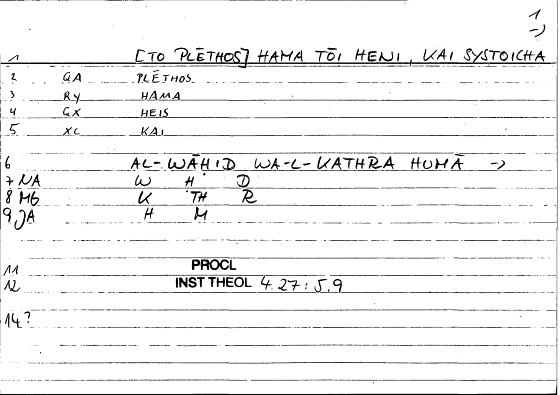 1
->
1 [TO PLĒTHOS] HAMA TŌI HENI, KAI SYSTOICHA
2 GA PLĒTHOS
3 Ry HAMA
4 GX HEIS
5 XC KAI
6 AL-WĀḤID WA-L-KATHRA HUMĀ ->
7 NA W Ḥ D
8 MG K TH R
9 JA H M
11 PROCL
12 INST THEOL 4.27:5.9
14?